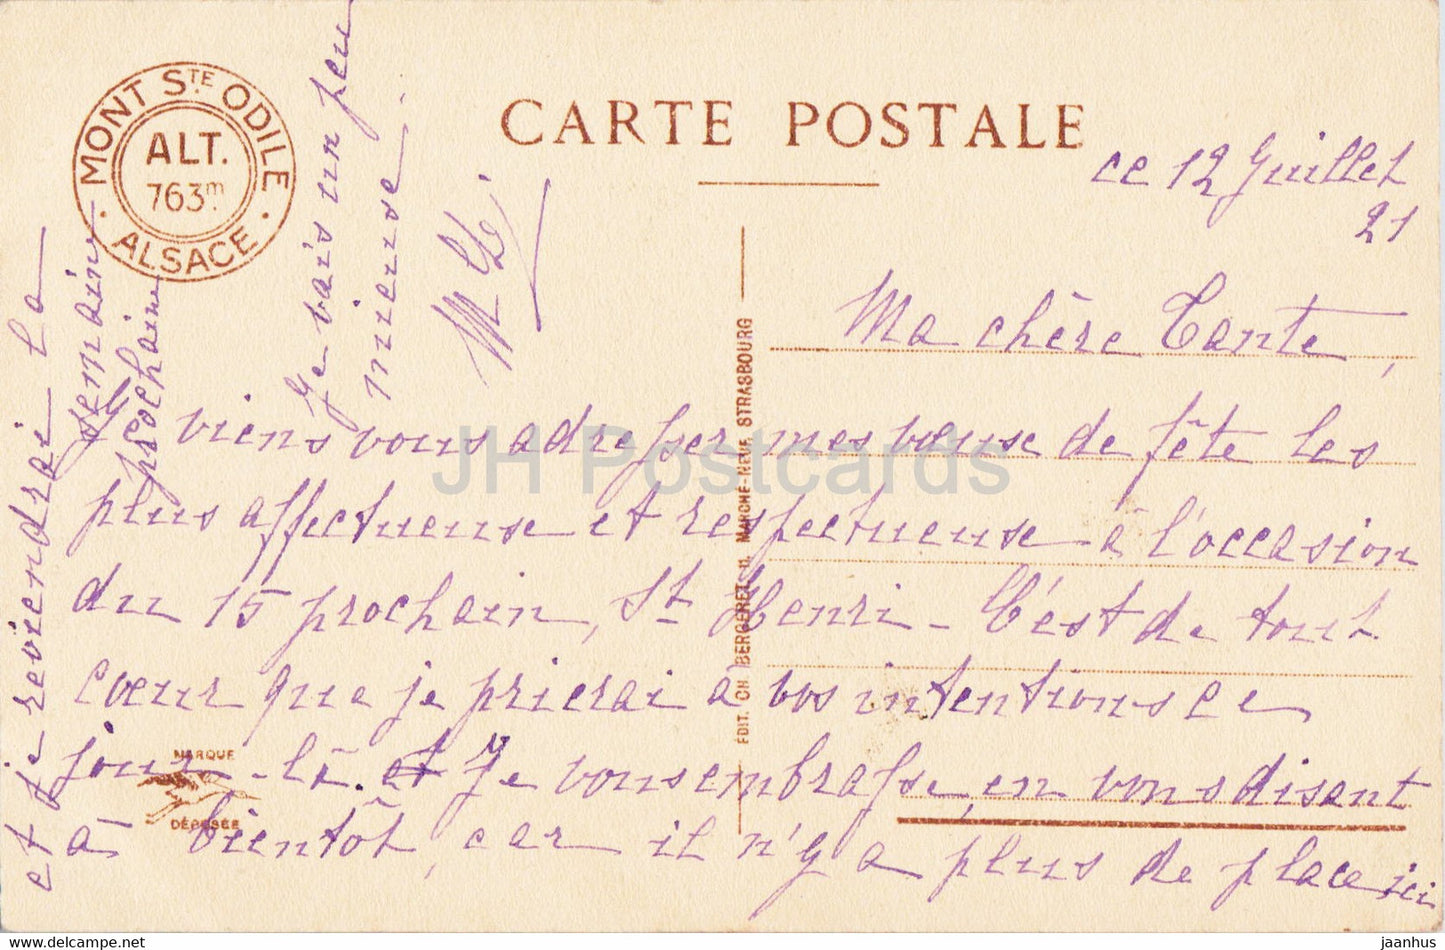 MONT STE ODILE
ALT.
763m
ALSACE
CARTE POSTALE
ce 12 Juillet
21
Ma chère Tante,
Je viens vous adresser mes vœuse de fête les
plus affectueuse et respectueuse à l'occasion
du 15 prochain, St Henri - C'est de tout
cœur que je prierai à vos intentions ce
jour-là. et Je vous embrasse, en vous disant
à bientôt, car il n'y a plus de place ici
et je reviendrai la
semaine
prochaine
Je vais un peu
mieuse.
EDIT. CH BERGERET, 11 MARCHÉ-NEUF STRASBOURG
MARQUE
DÉPOSÉE
JH Postcards
www.hippostcard.com
jaanhus